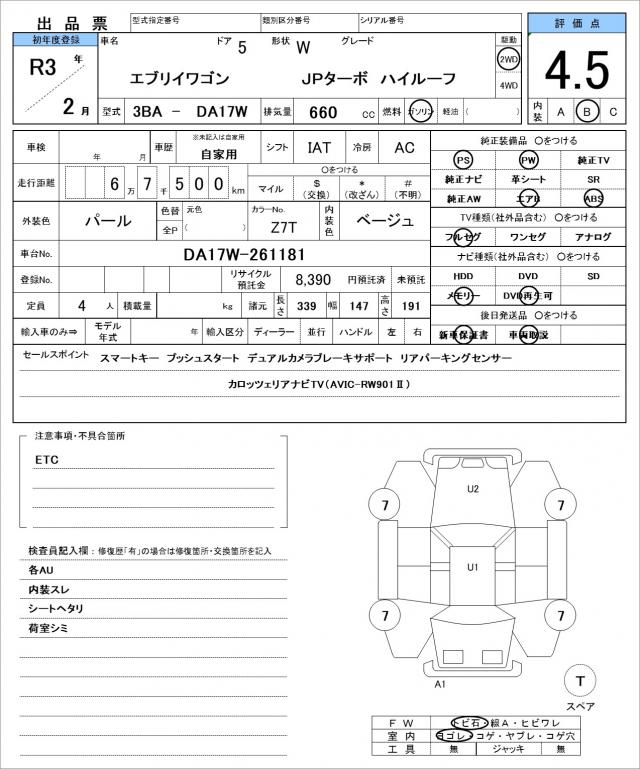 出品票 型式指定番号 類別区分番号 シリアル番号 評価点
初年度登録 車名 ドア 5 形状 W グレード 駆動
R3 年 エブリイワゴン JPターボ ハイルーフ 2WD 4.5
4WD
2 月 型式 3BA － DA17W 排気量 660 cc 燃料 ガソリン 軽油 ( ) 内装 A B C
車検 年 月 車歴 ※未記入は自家用 自家用 シフト IAT 冷房 AC 純正装備品 〇をつける
PS PW 純正TV
走行距離 6 万 7 千 5 0 0 km 〇をつける
マイル $ (交換) * (改ざん) # (不明)
純正ナビ 革シート SR
純正AW エアB ABS
外装色 パール 色替 元色 カラーNo. 内装色 ベージュ
全P ( ) Z7T
TV種類(社外品含む) 〇をつける
フルセグ ワンセグ アナログ
車台No. DA17W-261181 ナビ種類(社外品含む) 〇をつける
登録No. リサイクル預託金 8,390 円預託済 未預託 HDD DVD SD
定員 4 人 積載量 kg 諸元 長さ 339 幅 147 高さ 191 メモリー DVD再生可
後日発送品 〇をつける
輸入車のみ⇒ モデル年式 年 輸入区分 ディーラー 並行 ハンドル 左 右 新車保証書 車両取説
セールスポイント スマートキー プッシュスタート デュアルカメラブレーキサポート リアパーキングセンサー
カロッツェリアナビTV(AVIC-RW901Ⅱ)
注意事項・不具合箇所
ETC
検査員記入欄：修復歴「有」の場合は修復箇所・交換箇所を記入
各AU
内装スレ
シートヘタリ
荷室シミ
U2
7 7
U1
7 7
A1 T
スペア
FW トビ石・線A・ヒビワレ
室内 ヨゴレ・コゲ・ヤブレ・コゲ穴
工具 無 ジャッキ 無